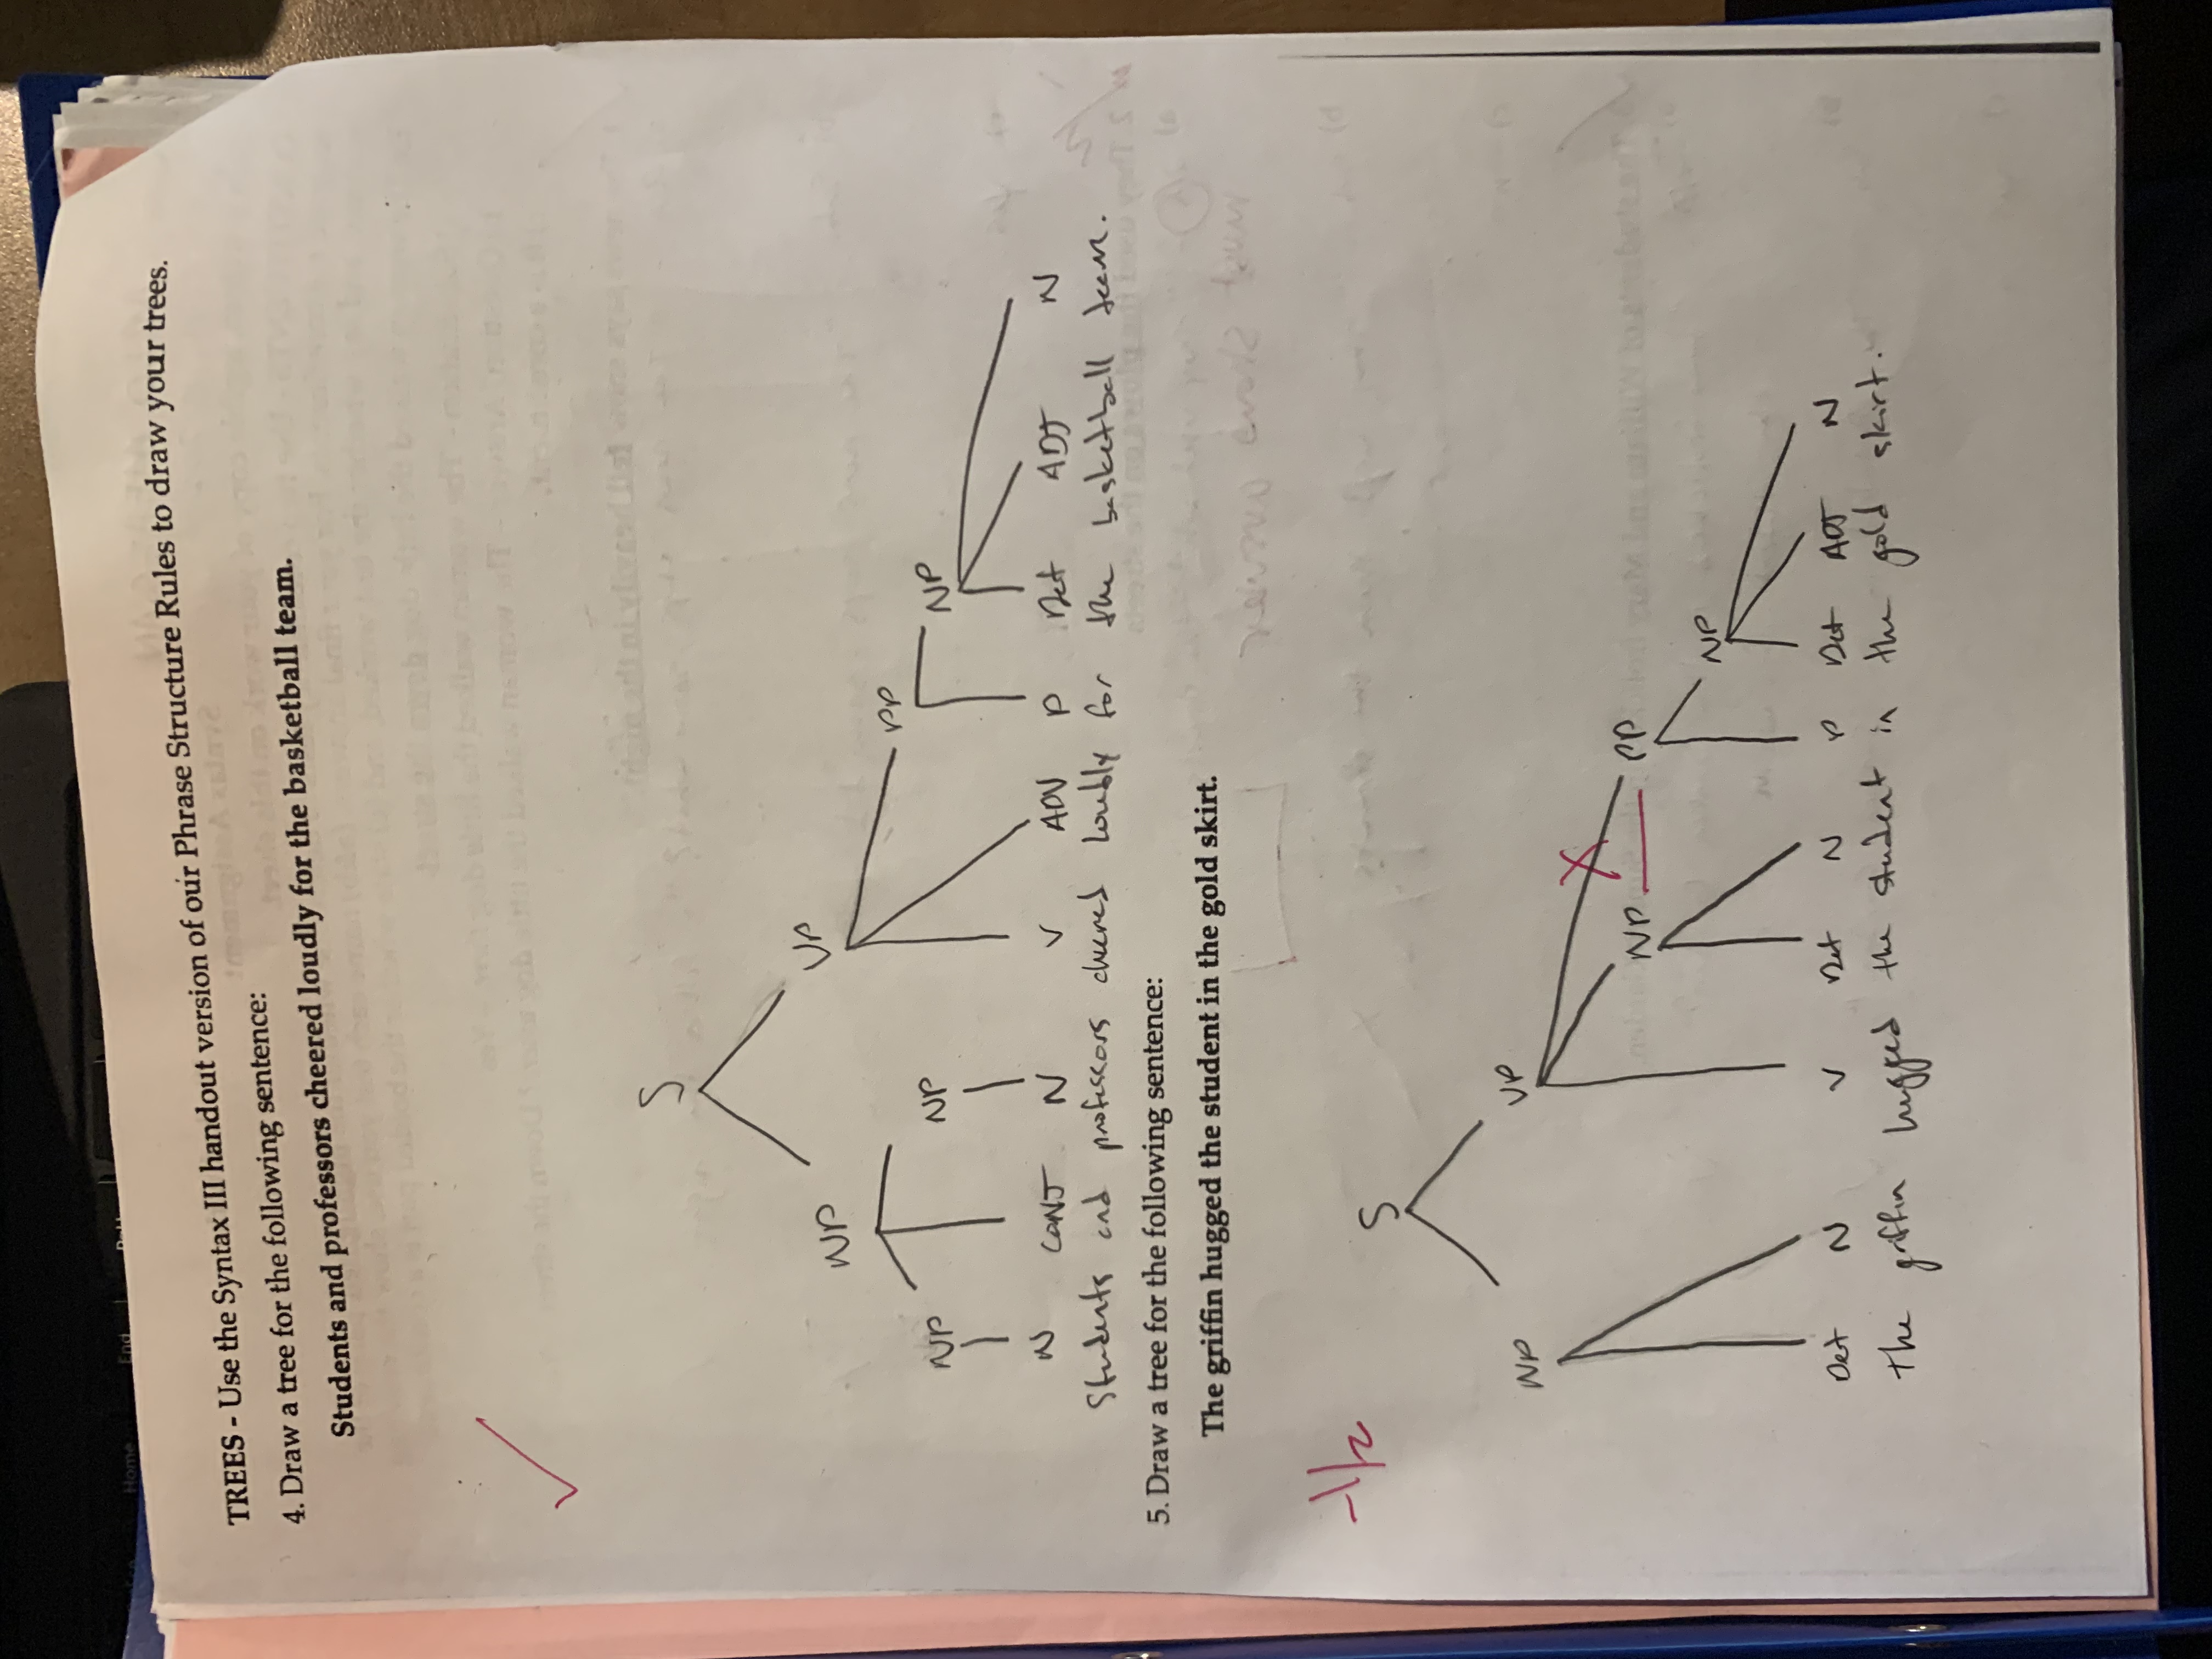 Home
End
TREES - Use the Syntax III handout version of our Phrase Structure Rules to draw your trees.
4. Draw a tree for the following sentence:
Students and professors cheered loudly for the basketball team.
S
NP VP
PP
NP NP NP
N CONJ N V ADV P Det ADJ N
Students and professors cheered loudly for the basketball team.
5. Draw a tree for the following sentence:
The griffin hugged the student in the gold skirt.
-1/2
S
NP VP
X
NP PP
NP
Det N V Det N P Det ADJ N
the griffin hugged the student in the gold skirt.